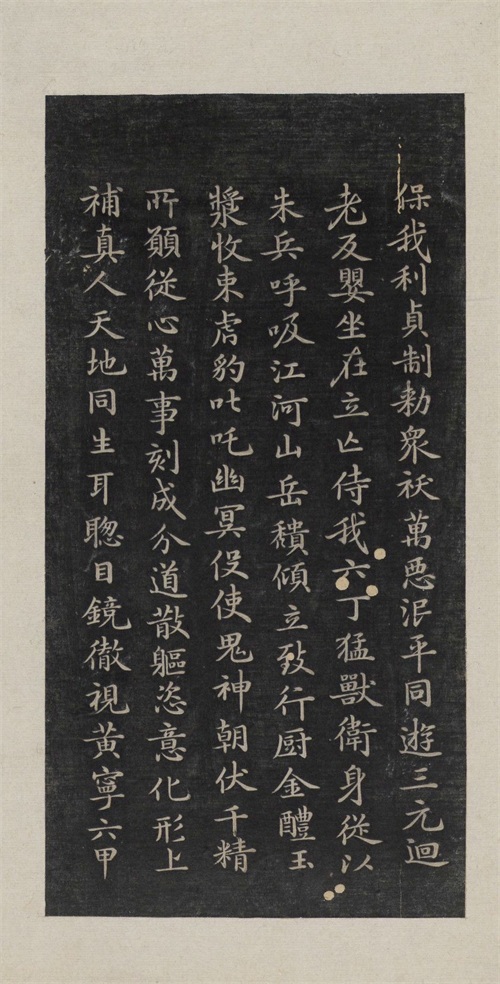 保我利貞制勑衆袄萬惡泯平同遊三元迴
老反嬰坐在立亡侍我六丁猛獸衛身從以
朱兵呼吸江河山岳穨傾立致行厨金醴玉
漿收束虎豹叱吒幽冥役使鬼神朝伏千精
所願從心萬事刻成分道散軀恣意化形上
補真人天地同生耳聦目鏡徹視黄寧六甲